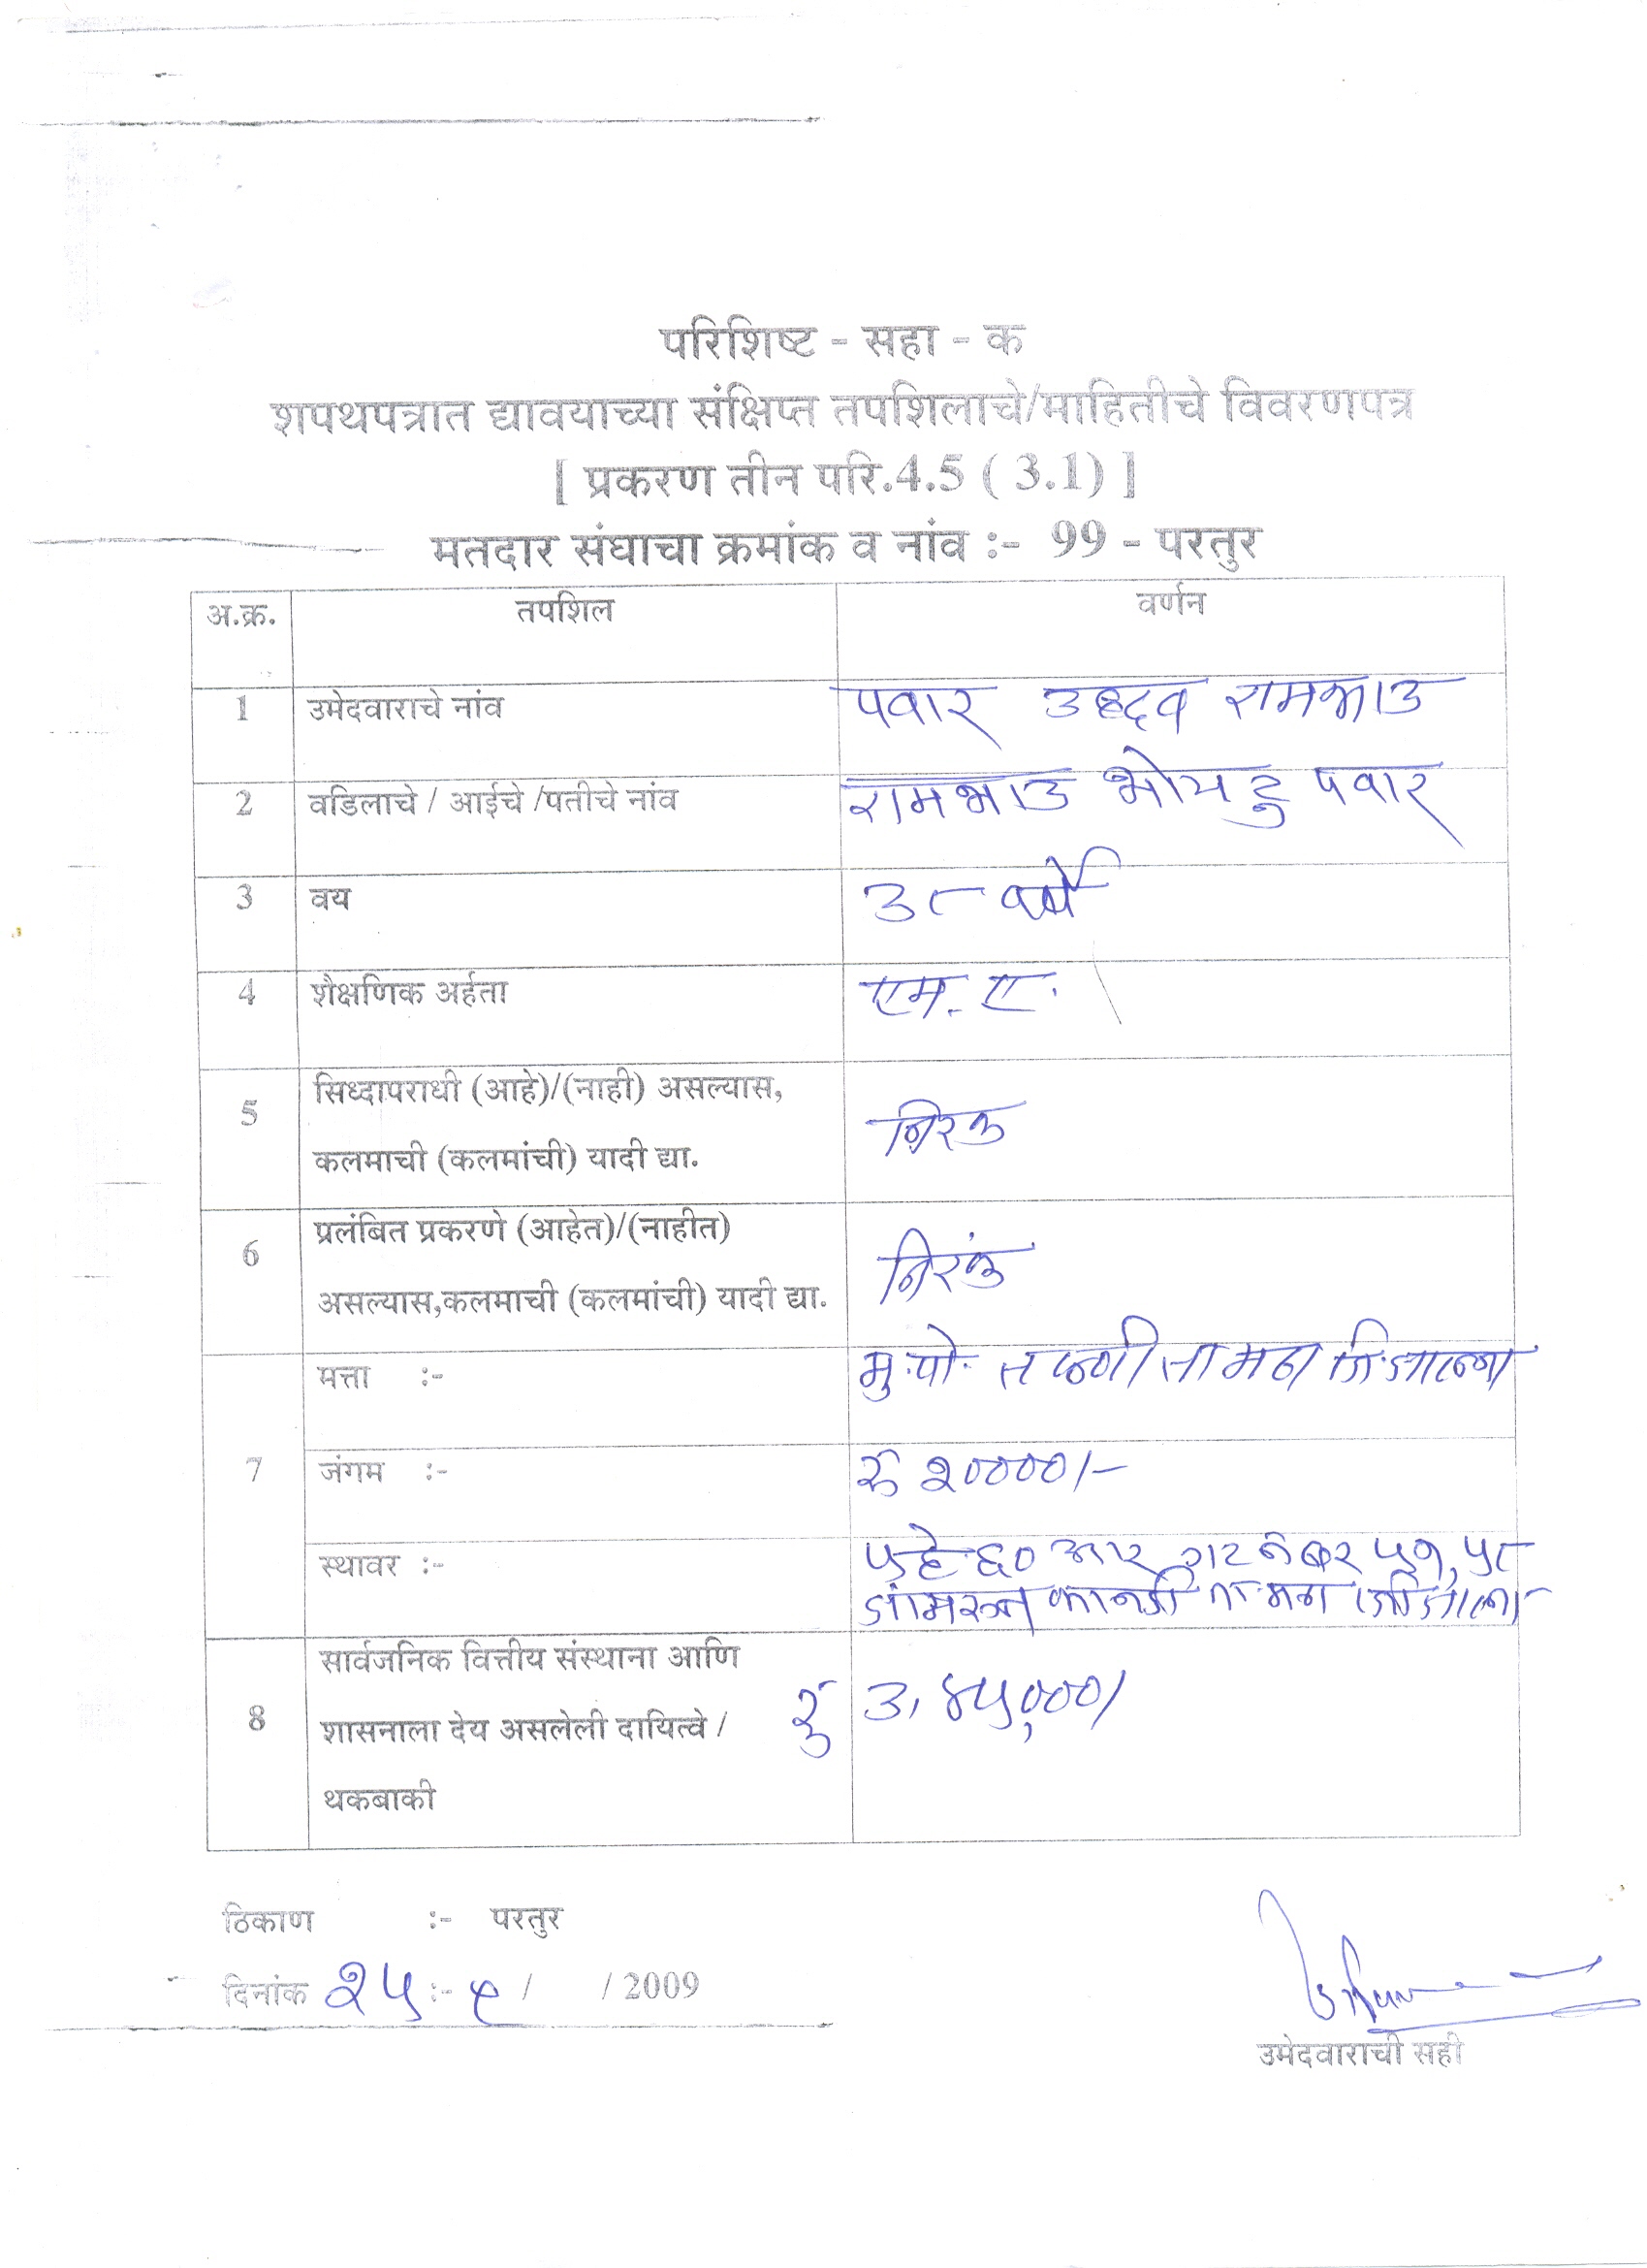 परिशिष्ट - सहा - क
शपथपत्रात द्यावयाच्या संक्षिप्त तपशिलाचे/माहितीचे विवरणपत्र
[ प्रकरण तीन परि.4.5 ( 3.1) ]
मतदार संघाचा क्रमांक व नांव :- 99 - परतुर
अ.क्र. तपशिल वर्णन
1 उमेदवाराचे नांव पवार उध्दव रामभाउ
2 वडिलाचे / आईचे /पतीचे नांव रामभाउ पवार
3 वय ३८ वर्षे
4 शैक्षणिक अर्हता एम. ए.
5 सिध्दापराधी (आहे)/(नाही) असल्यास,
कलमाची (कलमांची) यादी द्या. निरंक
6 प्रलंबित प्रकरणे (आहेत)/(नाहीत)
असल्यास,कलमाची (कलमांची) यादी द्या. निरंक
7 मत्ता :- मु.पो. तळणी ता मंठा जि.जालना
जंगम :- रु २००००/-
स्थावर :- ५ हे ६० आर गट नंबर ५७, ५८
ता मंठा जि जालना
8 सार्वजनिक वित्तीय संस्थाना आणि
शासनाला देय असलेली दायित्वे / रु ३,४५,०००/
थकबाकी
ठिकाण :- परतुर
दिनांक २५ :- ९ / / 2009
उमेदवाराची सही